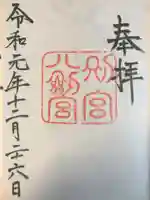 奉拝
別宮
八剣宮
令和元年十二月二十六日